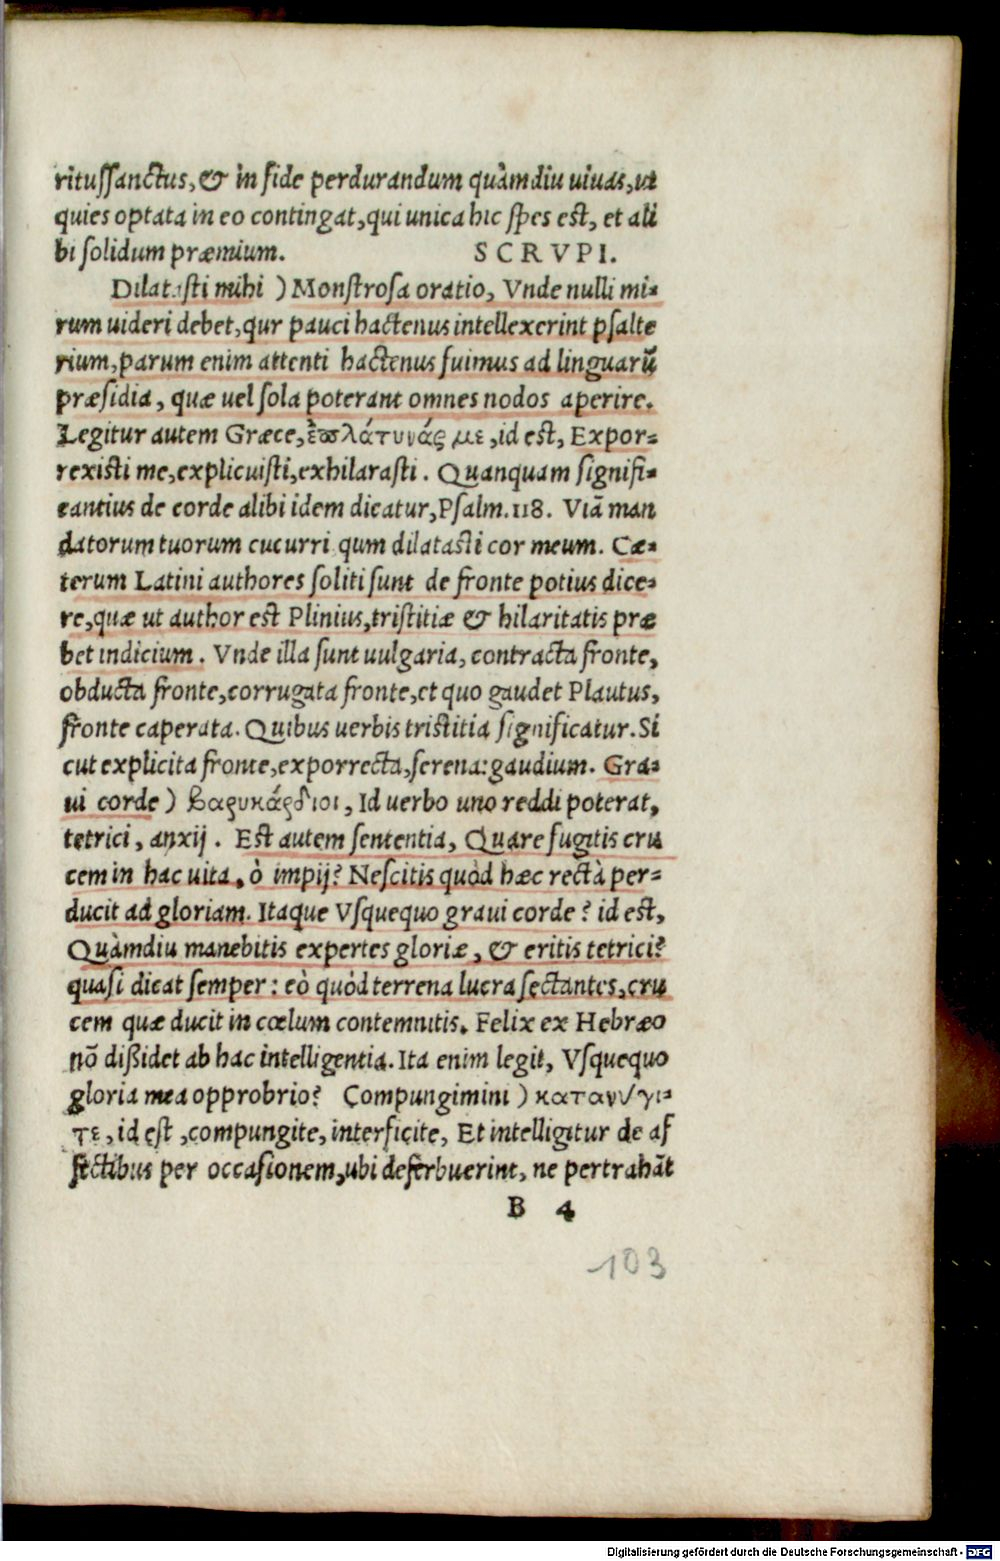 ritussanctus, & in fide perdurandum quàm diu uiuas, ut
quies optata in eo contingat, qui unica hic spes est, et ali
bi solidum præmium. SCRVPI.
Dilatasti mihi ) Monstrosa oratio, Vnde nulli mi-
rum uideri debet, qur pauci hactenus intellexerint psalte
rium, parum enim attenti hactenus fuimus ad linguarũ
præsidia, quæ uel sola poterant omnes nodos aperire.
Legitur autem Græce, ἐπλάτυνάς με, id est, Expor-
rexisti me, explicuisti, exhilarasti. Quanquam signifi-
cantius de corde alibi idem dicatur, Psalm. 118. Viã man
datorum tuorum cucurri qum dilatasti cor meum. Cæ-
terum Latini authores soliti sunt de fronte potius dice-
re, quæ ut author est Plinius, tristitiæ & hilaritatis præ
bet indicium. Vnde illa sunt uulgaria, contracta fronte,
obducta fronte, corrugata fronte, et quo gaudet Plautus,
fronte caperata. Quibus uerbis tristitia significatur. Si
cut explicita fronte, exporrecta, serena: gaudium. Gra-
ui corde ) βαρυκάρδιοι, Id uerbo uno reddi poterat,
tetrici, anxij. Est autem sententia, Quare fugitis cru
cem in hac uita, ò impij? Nescitis quòd hæc rectà per-
ducit ad gloriam. Itaque Vsquequo graui corde? id est,
Quàmdiu manebitis expertes gloriæ, & eritis tetrici?
quasi dicat semper: eò quòd terrena lucra sectantes, cru
cem quæ ducit in cœlum contemnitis. Felix ex Hebræo
nõ dißidet ab hac intelligentia. Ita enim legit, Vsquequo
gloria mea opprobrio? Compungimini ) κατανύγι-
τε, id est, compungite, interficite, Et intelligitur de af
fectibus per occasionem, ubi deferbuerint, ne pertrahãt
B 4
103
Digitalisierung gefördert durch die Deutsche Forschungsgemeinschaft - DFG